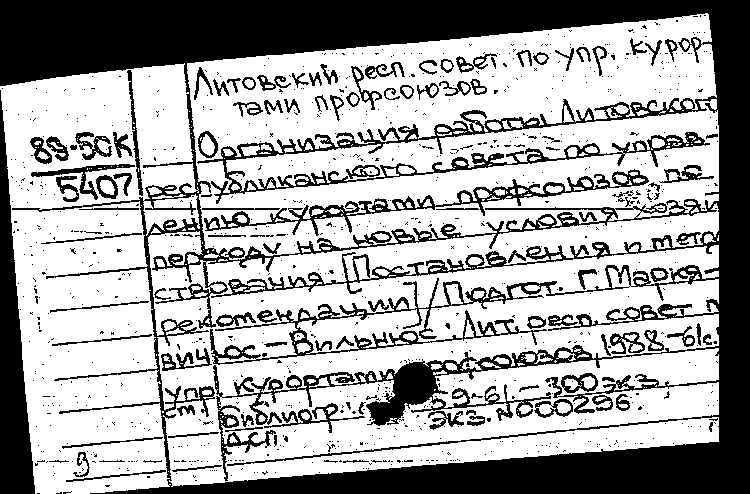 Литовский респ. совет. по упр. курор-
тами профсоюзов.
89-50К
5407
Организация работы Литовского
республиканского совета по управ-
лению курортами профсоюзов по
переходу на новые условия хозяй
ствования: [Постановления и мето
рекомендации] / Подгот. Г. Маркя-
вичюс. - Вильнюс: Лит. респ. совет п
упр. курортами профсоюзов, 1988. - 61с.;
ст. Библиогр.: 59-61. - 300 экз.
Экз. N000296.
Дсп.
9